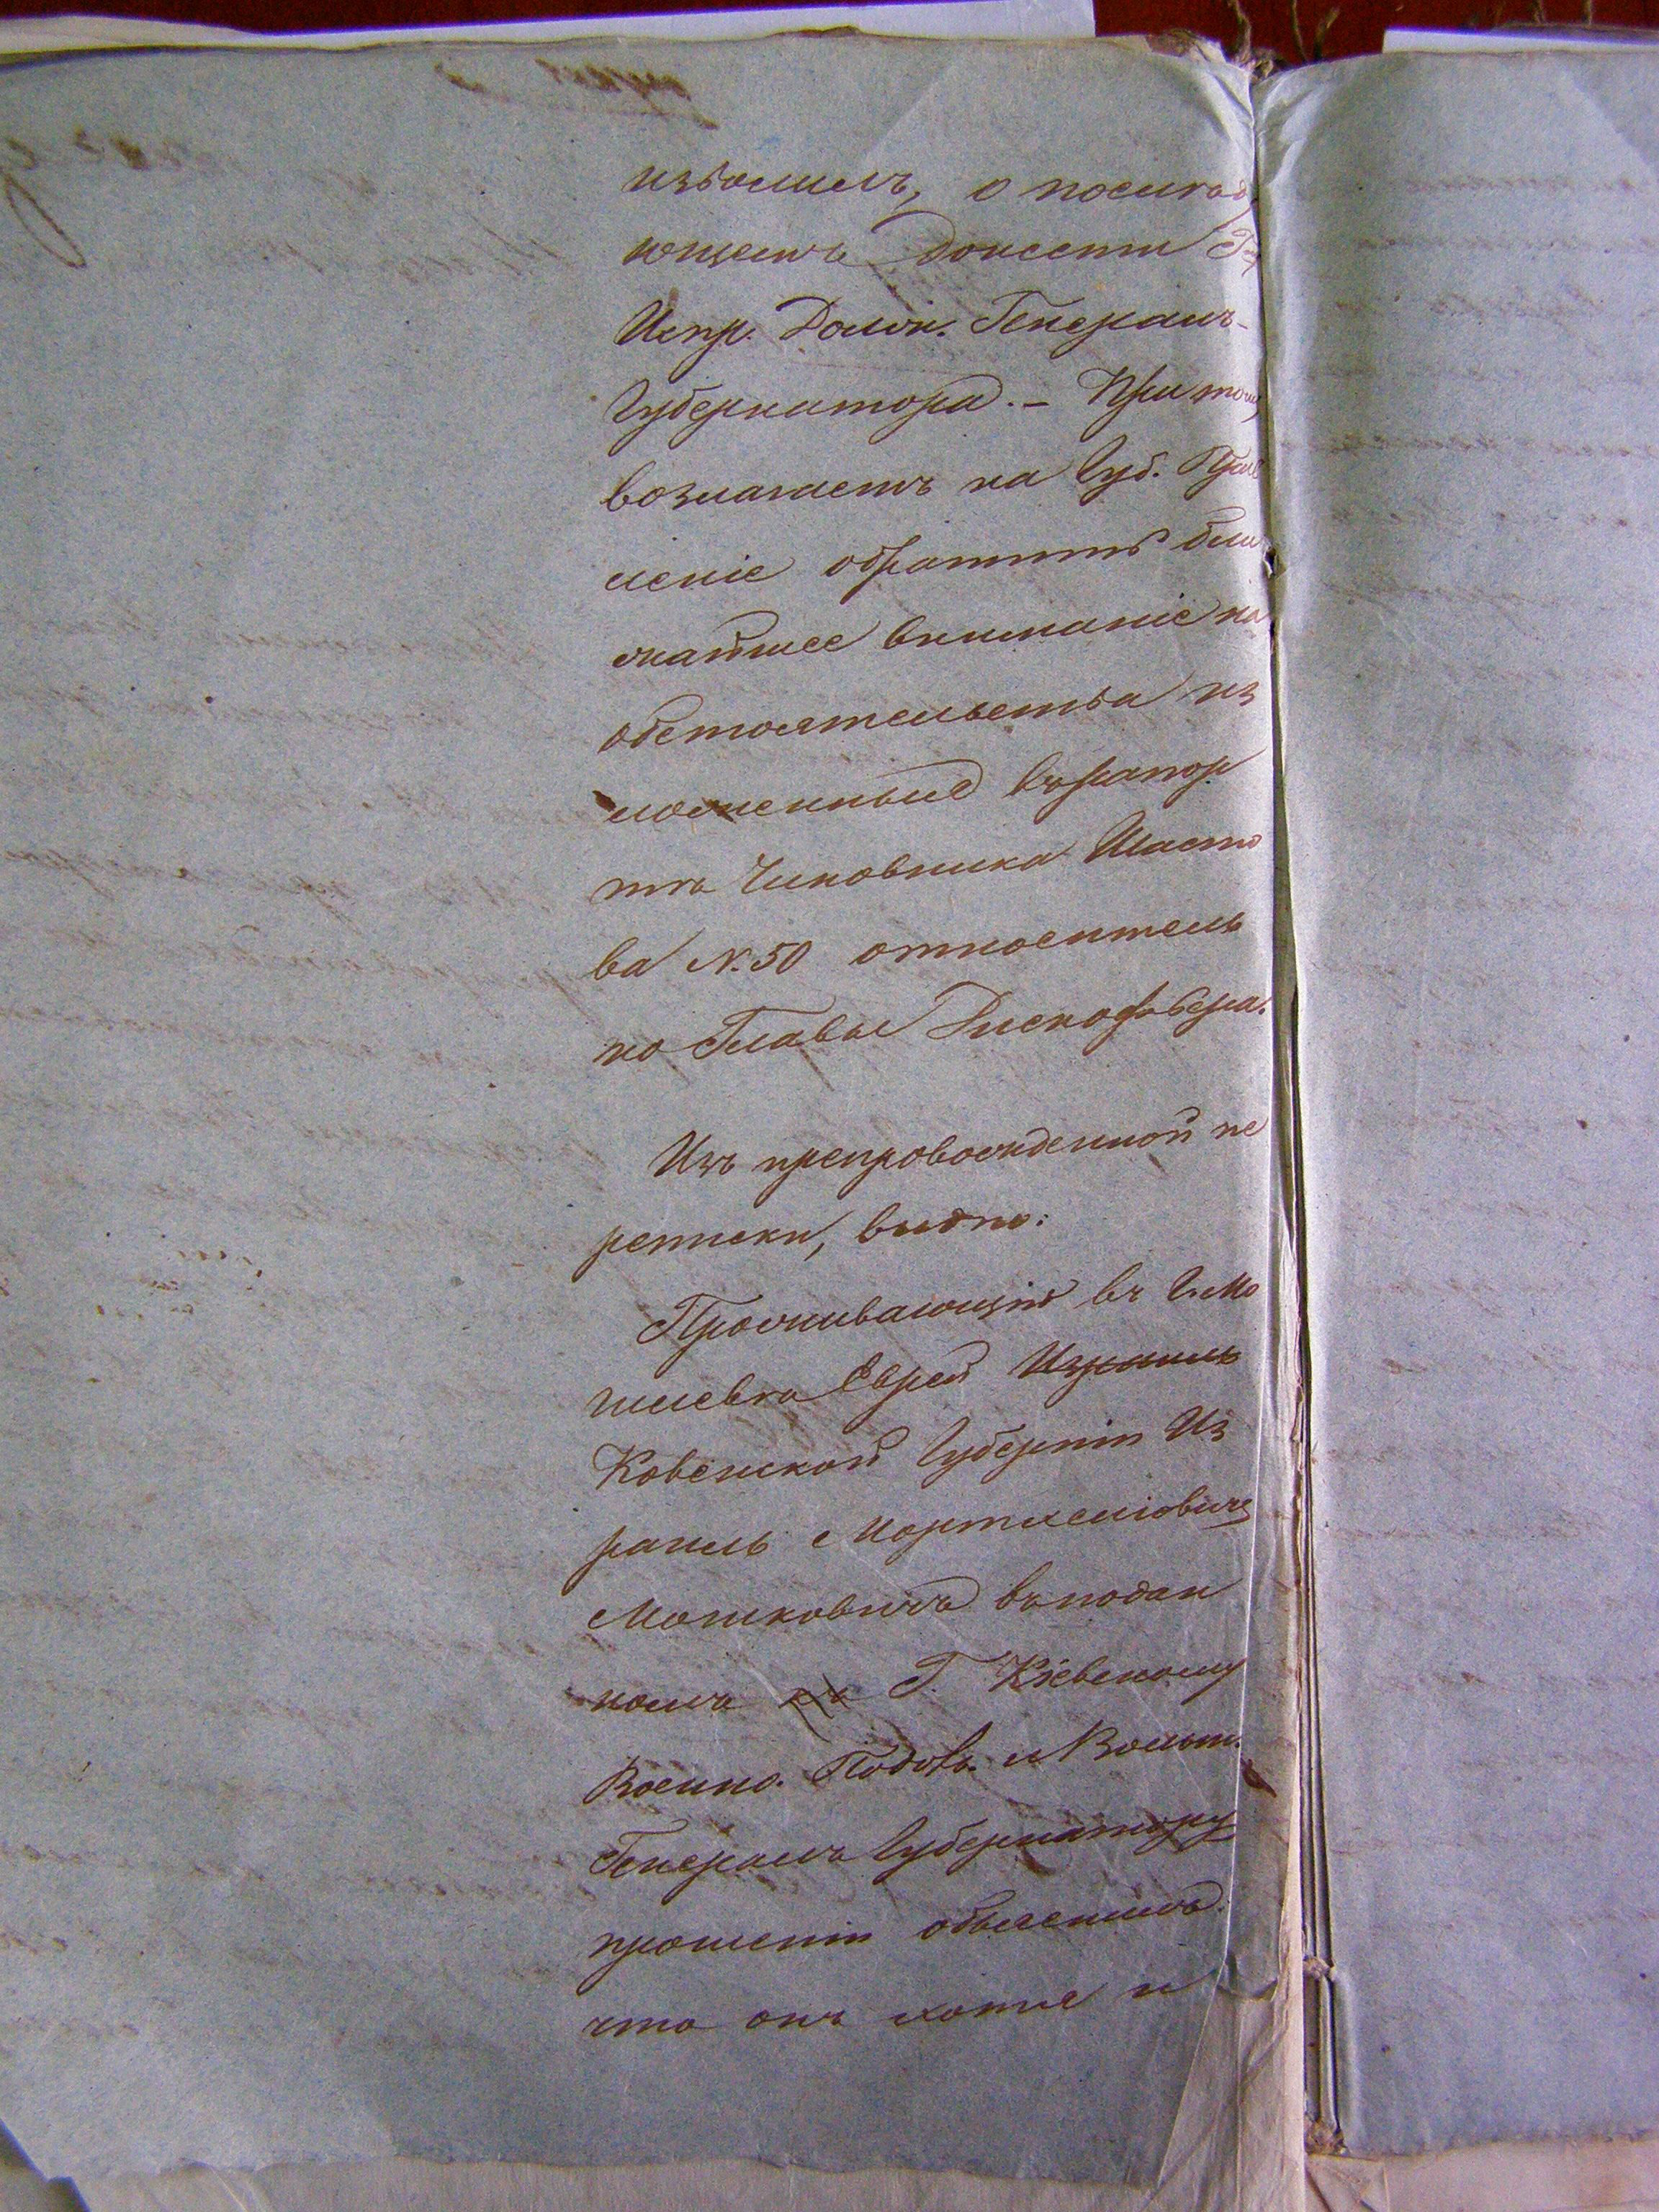 изволилъ, о послѣд
ющемъ донести Г.
Испр. Должн. Генералъ-
Губернатора. – При томъ
возлагаетъ на Губ. Прав
леніе обратить бли
жайшее вниманіе на
обстоятельства из
ложенныя въ рапор
тѣ Чиновника Шасто
ва №. 50 относитель
но Главы
Изъ препровожденной пе
реписки, видно:
Проживающій въ г. Мо
гилевѣ Еврей Израиль
Ковенской Губерніи Из
раиль Мортхелiовичъ
Мошковичъ въ подан
номъ къ Г. Кіевскому
Военно. Подол. и Волын.
Генералъ Губернатору
прошеніи объяснилъ
что онъ хотя и